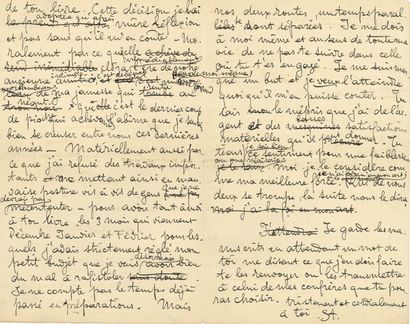 de ton livre. Cette décision j'ai
adoptée mûre réflexion
et pas sans qu'il m'en coûte. Mo-
ralement parce qu'elle
clôt de mon
ancienne amitié
ma jeunesse qui
qu'elle est le dernier coup
de pioche à l'abîme que je sais
bien se creuser entre nous ces dernières
années – Matériellement aussi par-
ce que j'ai refusé des travaux impor-
tants me mettant ainsi en mau-
vaise posture vis à vis de gens que je ne
devrais pas mécontenter – pour avoir tant ainsi
à ton livre les 3 mois qui viennent
Décembre Janvier et Février pour les-
quels j'avais strictement réglé mon
petit budget que je vais désormais avoir bien
du mal à rafistoler sans doute.
Je ne compte pas le temps déjà
passé en préparations. Mais
nos deux routes un temps paral-
lèles se sont séparées. Je me dois
à moi même et au sens de ma
voie de ne pas te suivre dans celle
où tu t'es engagé. Je me suis
un but et je veux l'atteindre
quoi qu'il m'en puisse coûter. Tu
sais le mépris que j'ai de l'ar-
gent et des basses satisfactions
matérielles qu'il donne. Tu
tiens ce sentiment pour une faiblesse
moi je le considère com-
me ma meilleure force.
deux se trompe la suite nous le dira
moi j'ai la foi en mon art.
J'attendrai Je garde les ma-
nuscrits en attendant un mot de
toi me disant ce que j'en dois faire
te les renvoyer ou les transmettre
à celui de mes confrères que tu pour-
ras choisir. tristement et cordialement
à toi